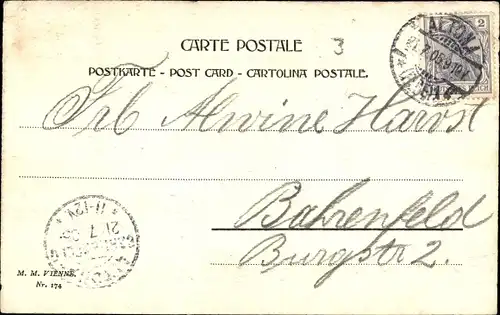 CARTE POSTALE
3
POSTKARTE - POST CARD - CARTOLINA POSTALE.
ALTONA
2
Frl. Alwine Harvst
Bahrenfeld
Burgstr 2.
11-12V
21.7.05
M. M. VIENNE.
Nr. 174